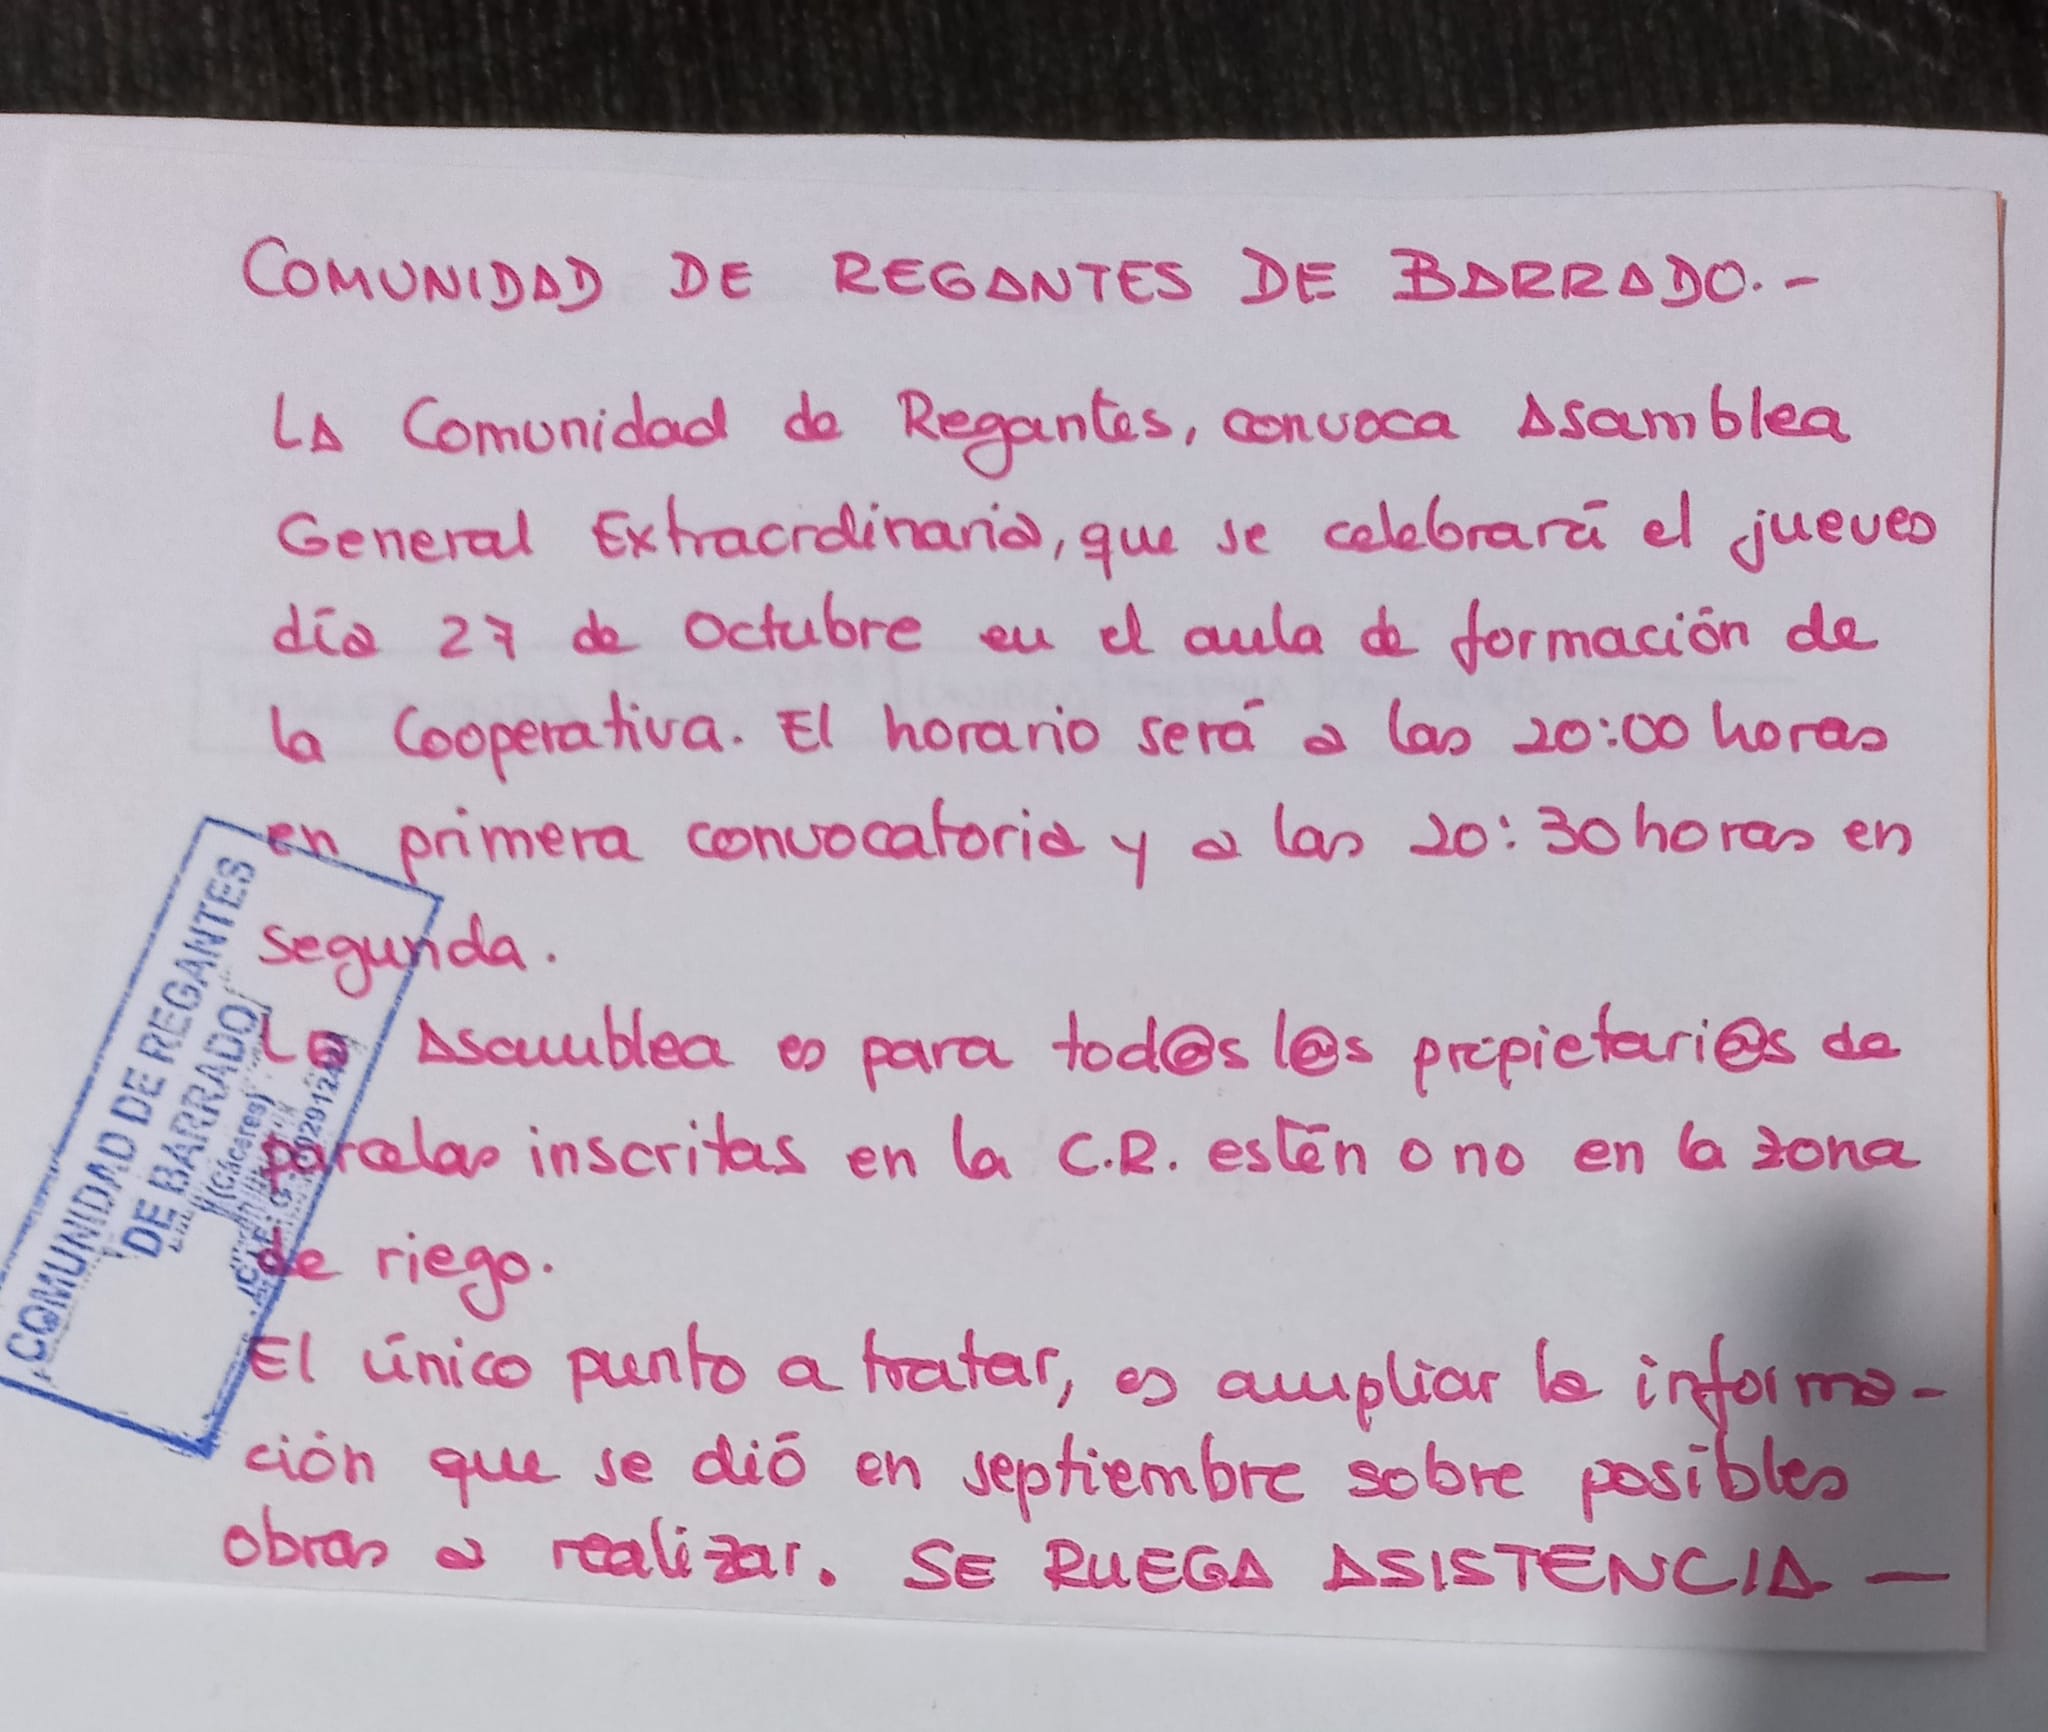 COMUNIDAD DE REGANTES DE BARRADO.-
LA Comunidad de Regantes, convoca Asamblea
General Extraordinaria, que se celebrará el jueves
día 27 de Octubre en el aula de formación de
la Cooperativa. El horario será a las 20:00 horas
en primera convocatoria y a las 20:30 horas en
segunda.
La Asamblea es para tod@s l@s propietari@s de
parcelas inscritas en la C.R. estén o no en la zona
de riego.
El único punto a tratar, es ampliar la informa-
ción que se dió en septiembre sobre posibles
obras a realizar. SE RUEGA ASISTENCIA -
COMUNIDAD DE REGANTES
DE BARRADO
(Cáceres)